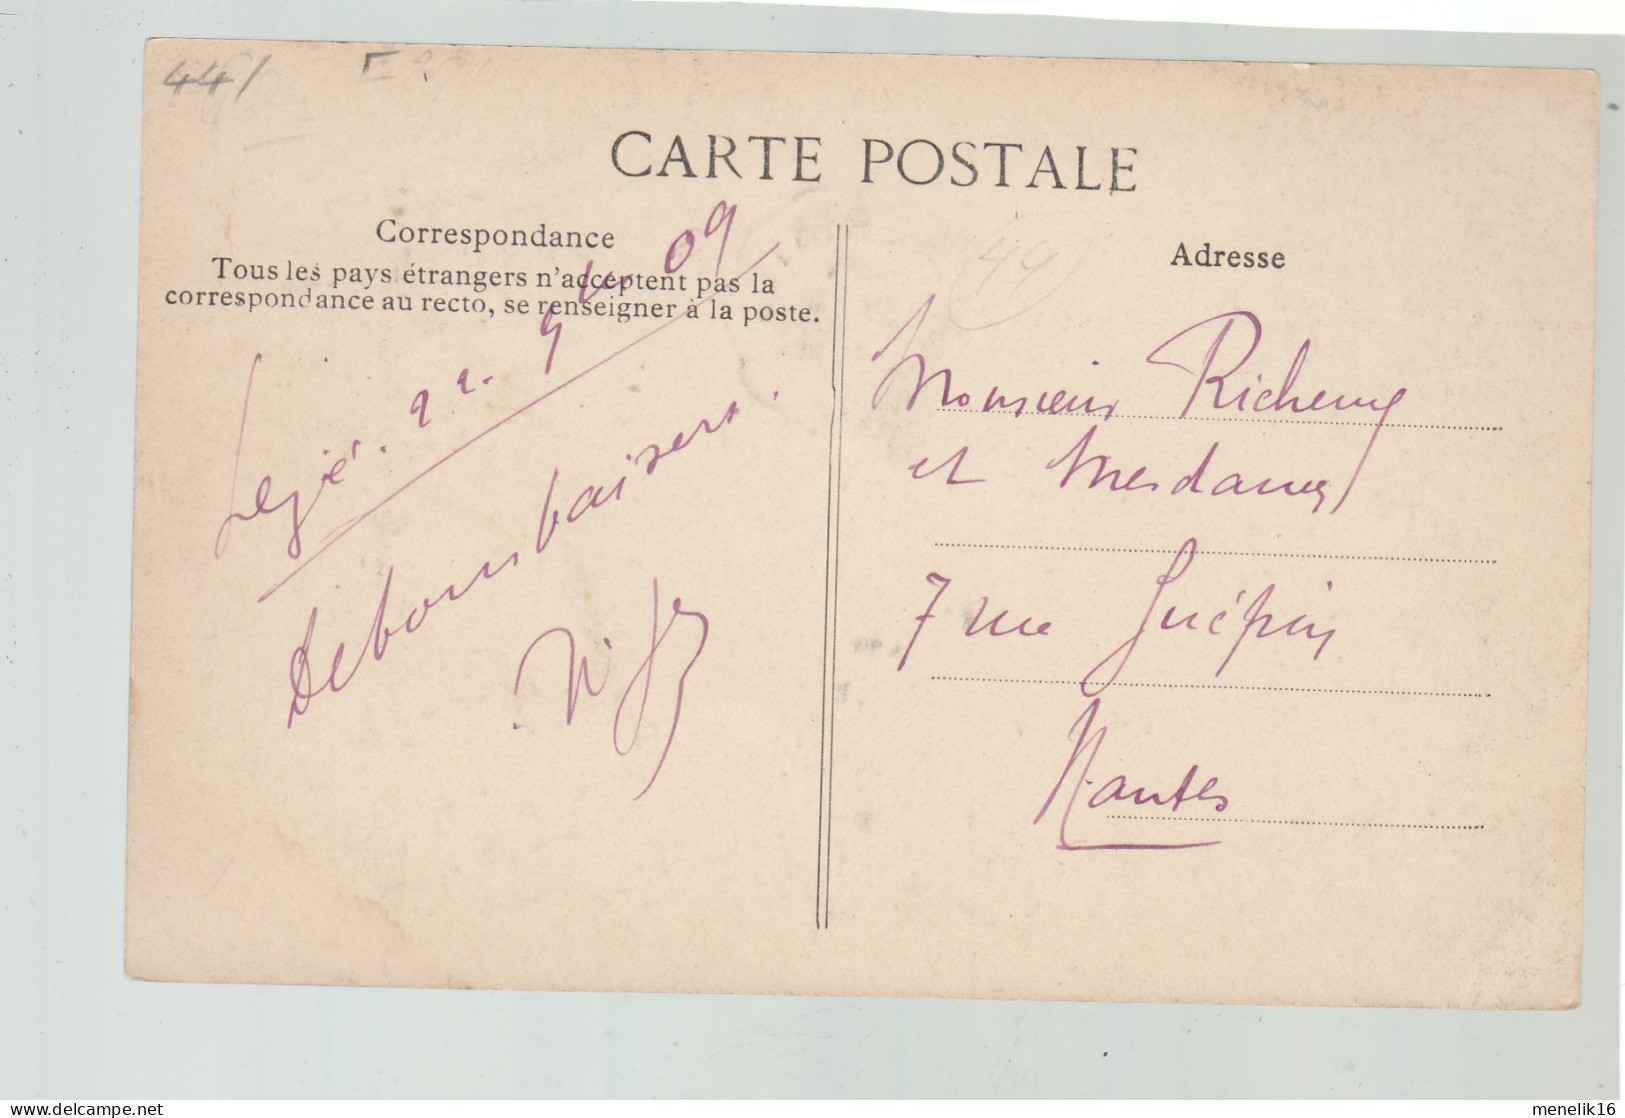 44/
CARTE POSTALE
Correspondance
Tous les pays étrangers n'acceptent pas la
correspondance au recto, se renseigner à la poste.
Legé. 22. 9 09
De bons baisers.
Adresse
44
Monsieur Richeux
et Mesdames
7 rue Guépin
Nantes
delcampe.net
menelik16